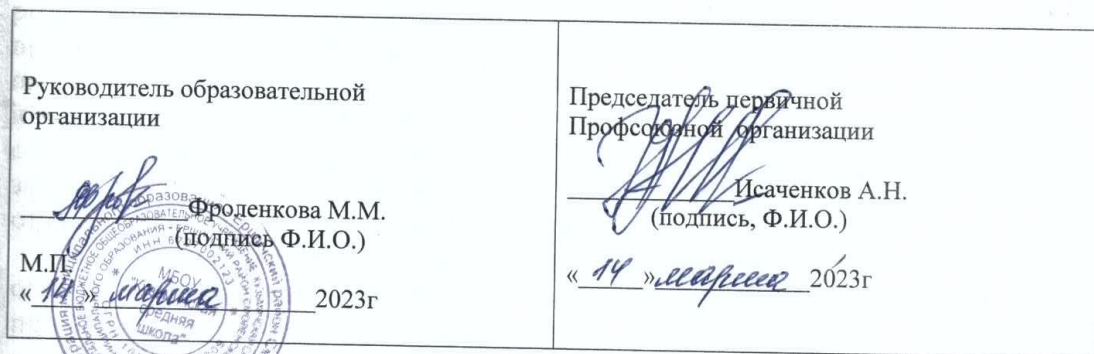 Руководитель образовательной
организации
Фроленкова М.М.
(подпись Ф.И.О.)
М.П.
«14» марта 2023г
МБОУ
средняя
школа"
Председатель первичной
Профсоюзной организации
Исаченков А.Н.
(подпись, Ф.И.О.)
«14» марта 2023г